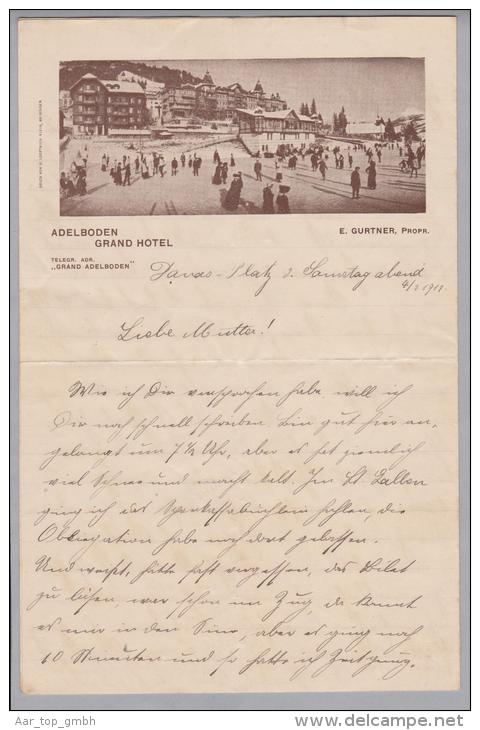 ADELBODEN
GRAND HOTEL
E. GURTNER, PROPR.
TELEGR. ADR.
„GRAND ADELBODEN"
Davos-Platz d. Samstag abend
4/2 1911.
Liebe Mutter!
Wie ich Dir versprochen habe will ich
Dir noch schnell schreiben. Bin gut hier an-
gelangt um 7½ Uhr, aber es hat ziemlich
viel Schnee und macht kalt. In St. Gallen
ging ich das Sparkassabüchlein holen, die
Obligation habe noch dort gelassen.
Und weisst, hätte fast vergessen, das Bilet
zu lösen, war schon im Zug, da kommt
es mir in den Sinn, aber es ging noch
10 Minuten und so hatte ich Zeit genug.
Aar_top_gmbh
www.delcampe.net